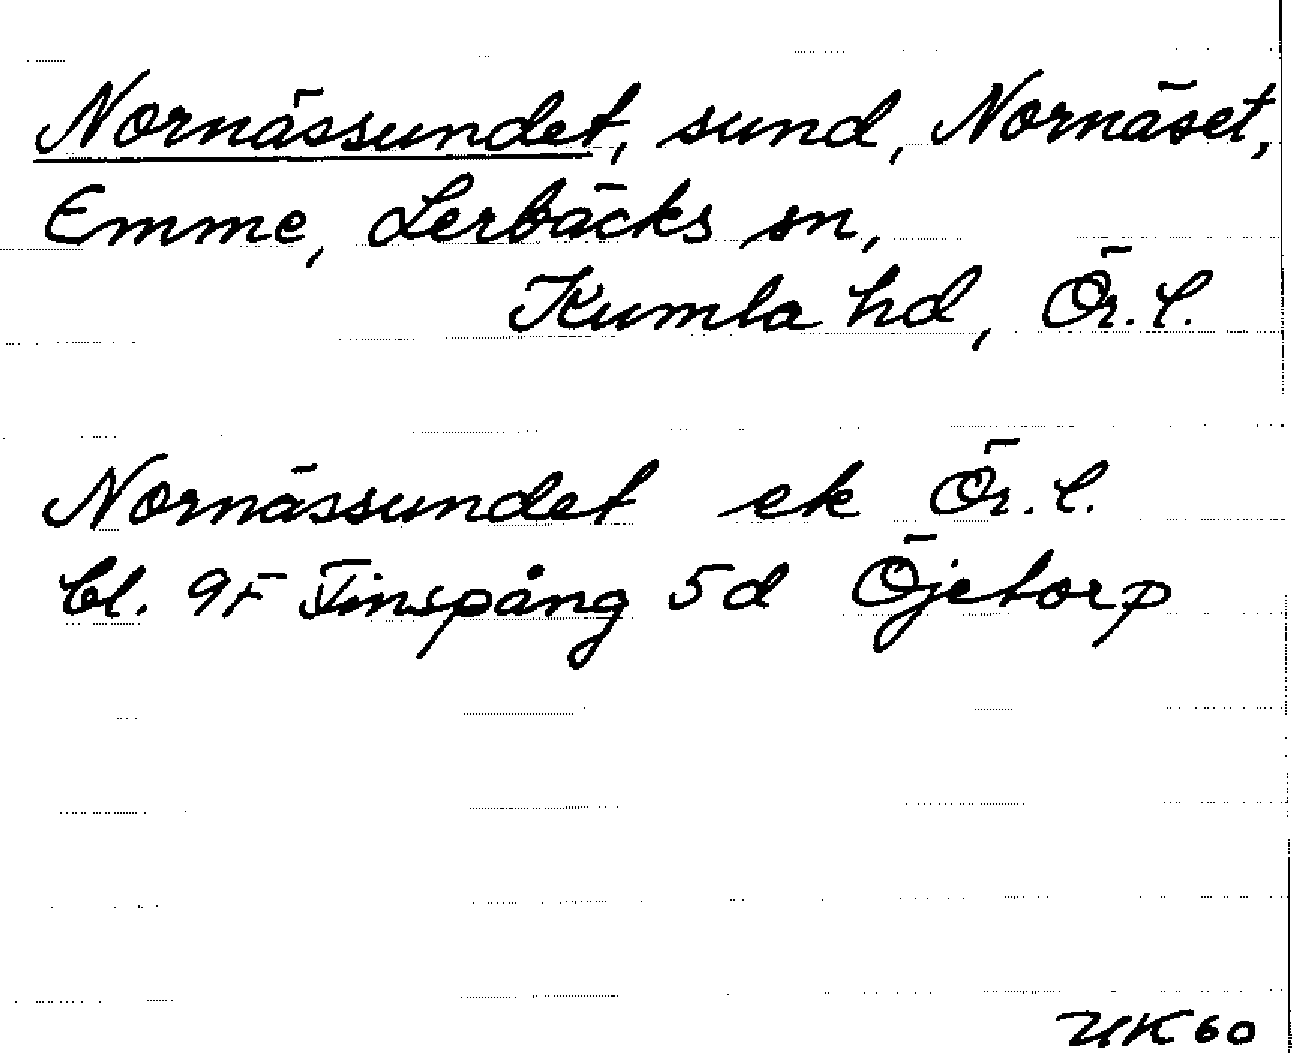 Nornässundet, sund, Nornäset,
Emme, Lerbäcks sn,
Kumla hd, Ör. l.
Nornässundet ek Ör. l.
bl. 9F Finspång 5d Öjetorp
UK 60